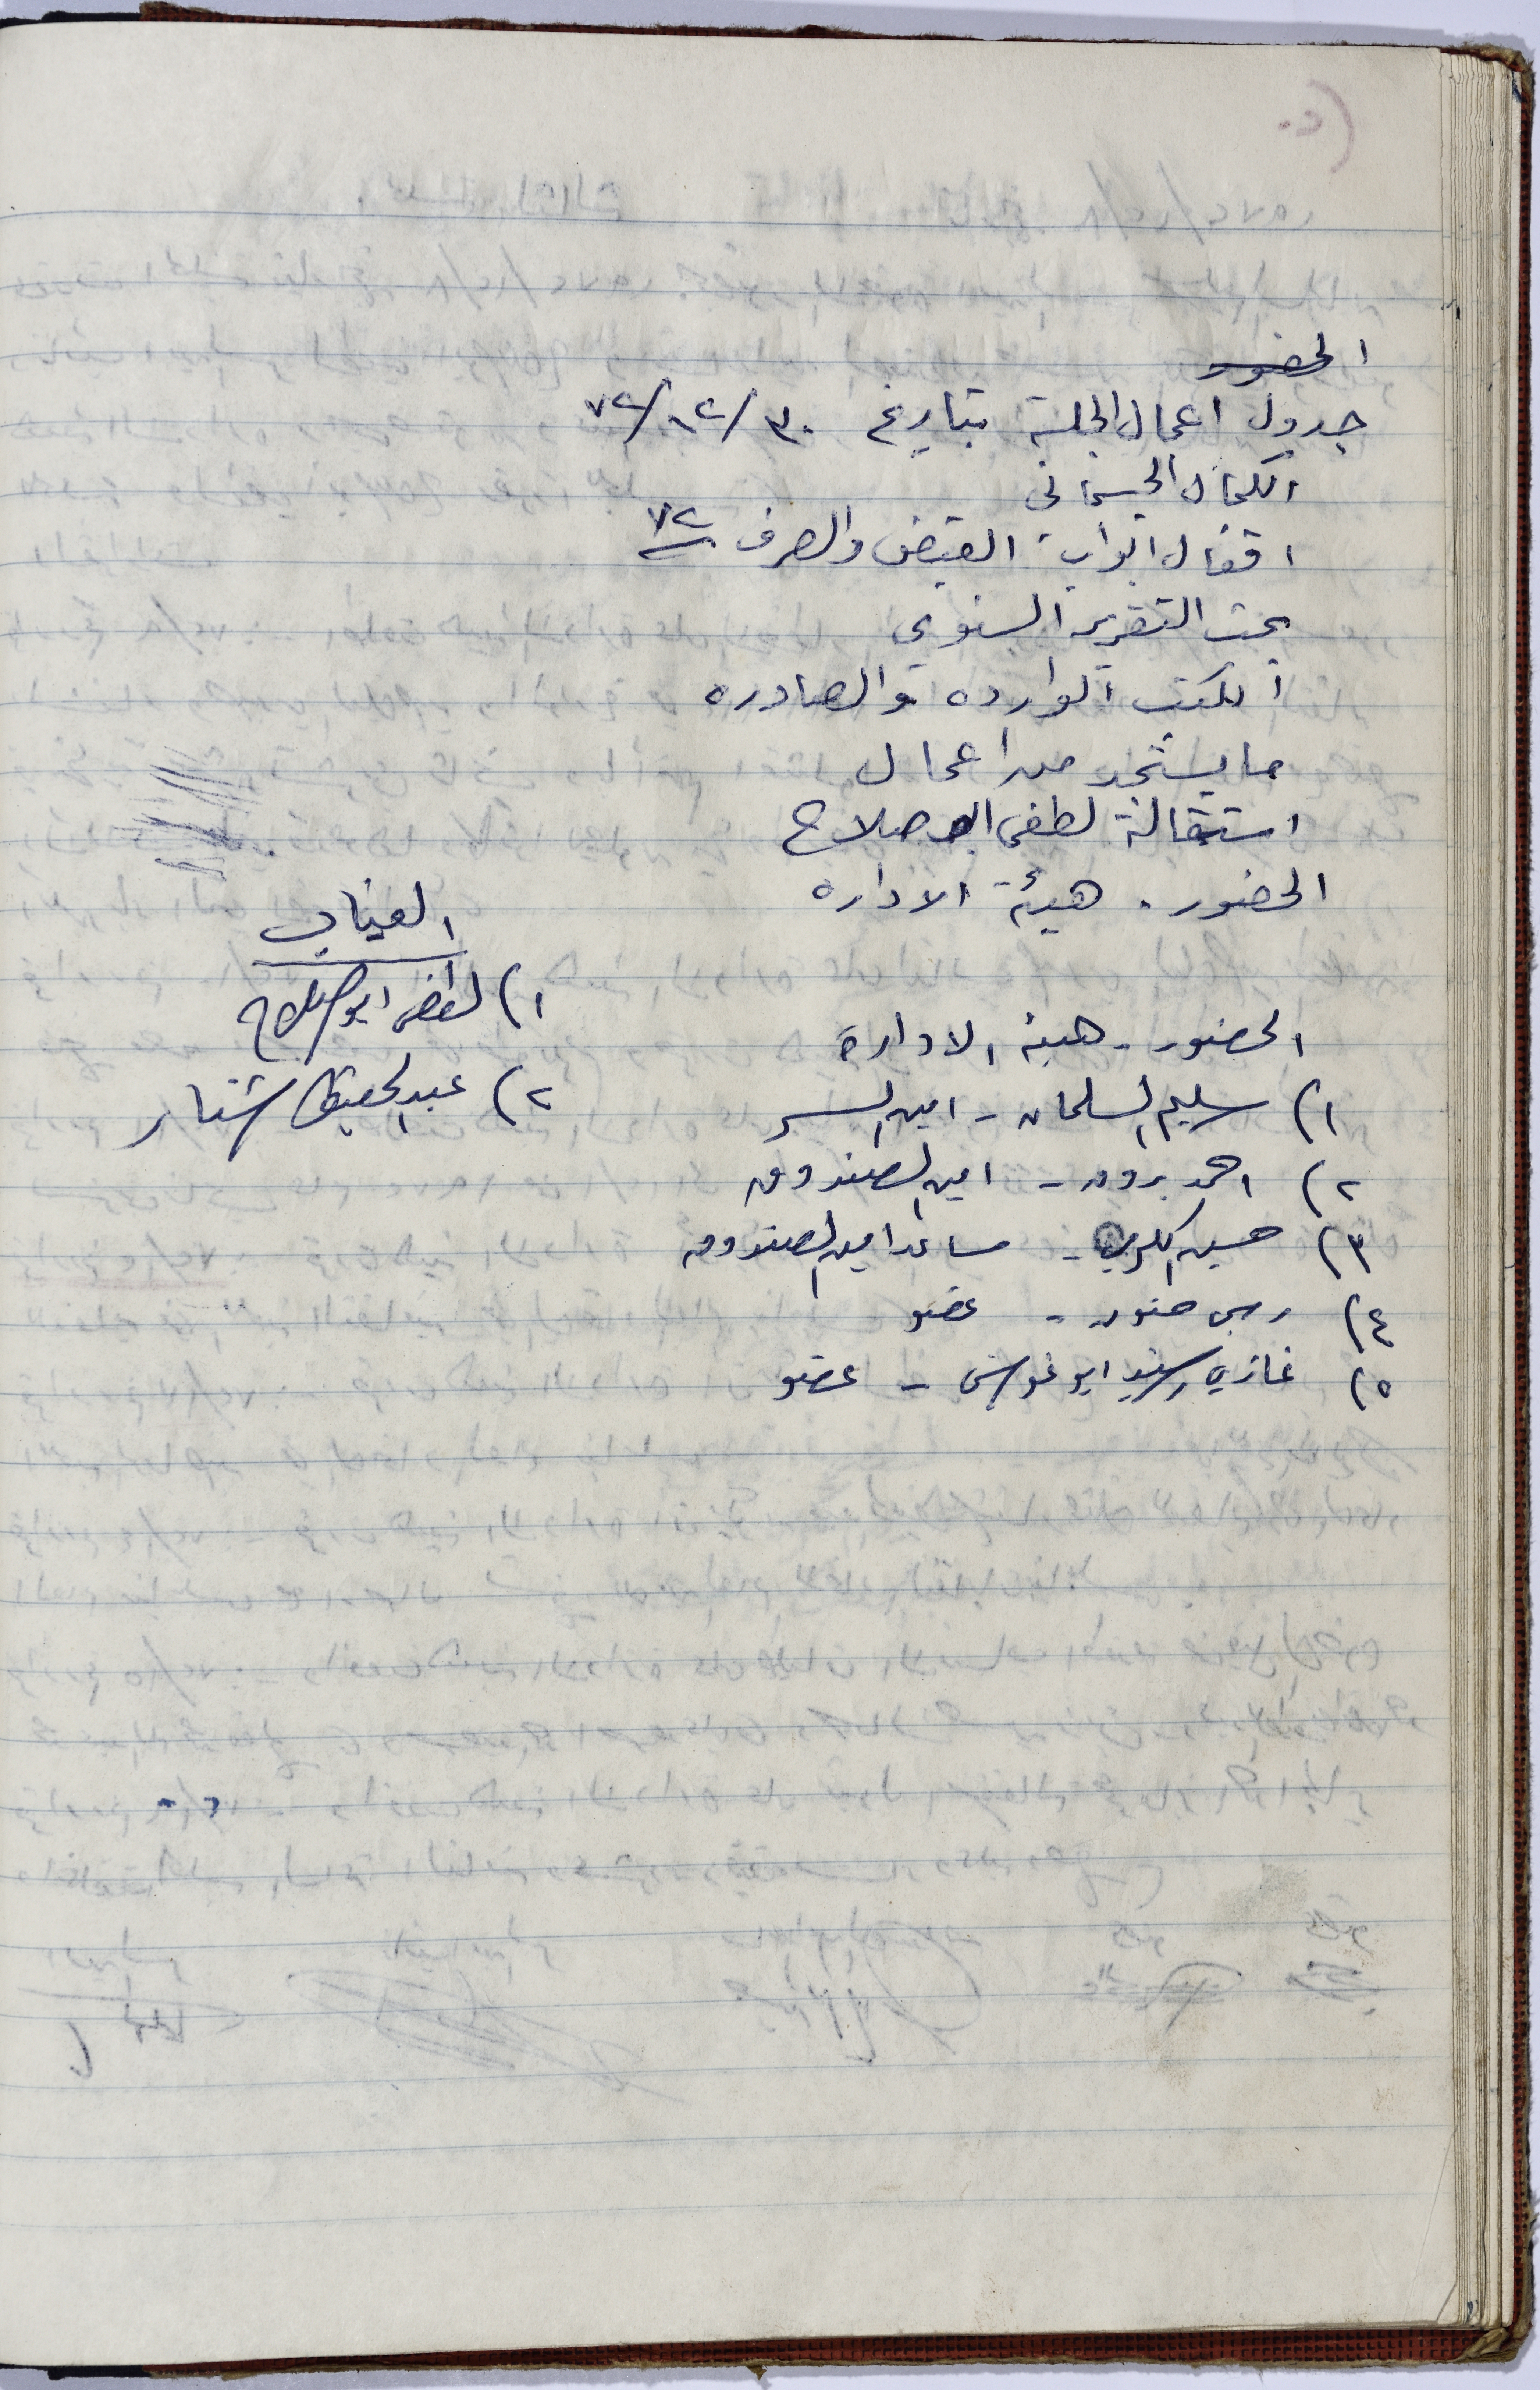 (٢٠
الحضور
جدول اعمال الجلسة بتاريخ ٣٠/١٢/٧٢
الكمال الجسماني
اقفال ابواب القبض والصرف ٧٢
بحث التقرير السنوي
الكتب الوارده والصادره
ما يستجد من اعمال
استقالة لطفي ابو صلاح
الحضور . هيئة الاداره
الحضور - هيئة الادارة
١) سليم السلمان - امين السر
٢) احمد - امين الصندوق
٣) حسين - مساعد امين الصندوق
٤) - عضو
٥) غازي رشيد ابو غوش - عضو
الغياب
١) لطفي ابو صلاح
٢) عبد الحفيظ شنار